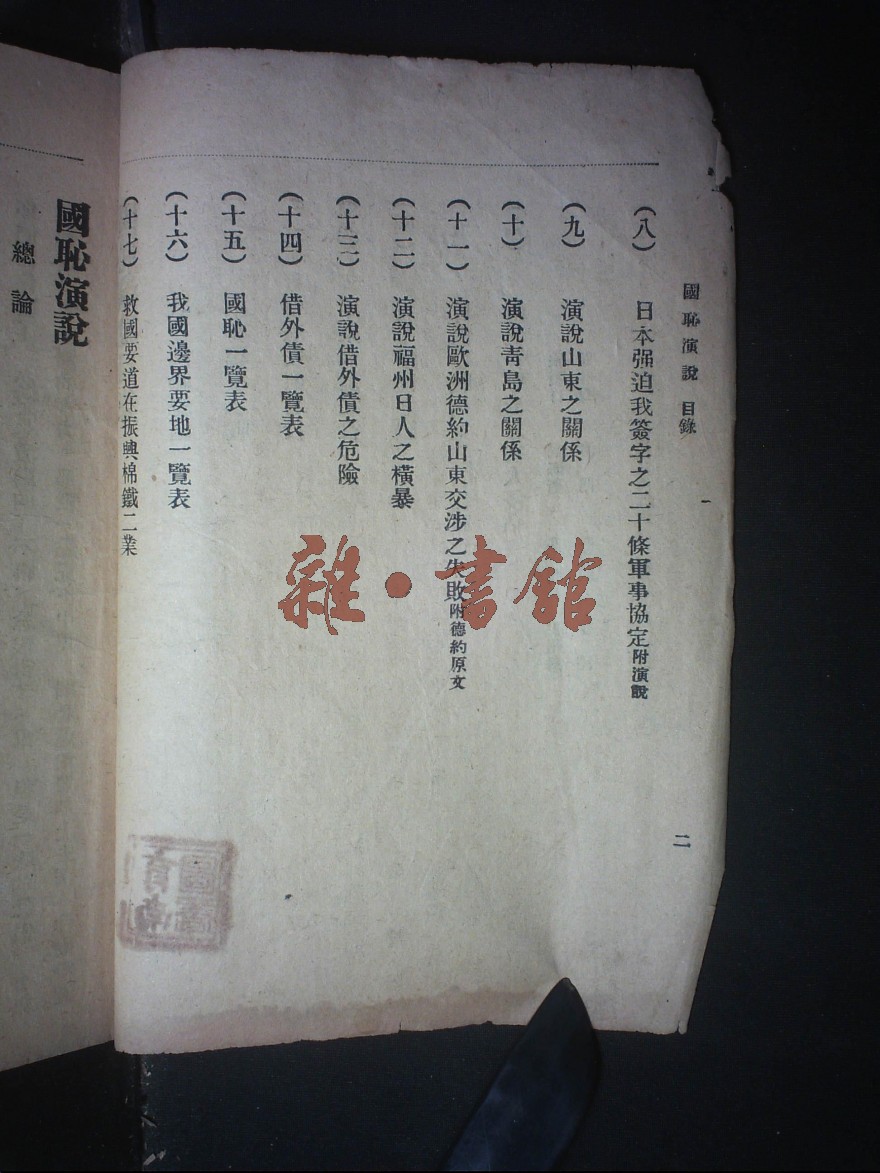 國恥演說 目錄 二
(八) 日本强迫我簽字之二十條軍事協定附演說
(九) 演說山東之關係
(十) 演說靑島之關係
(十一) 演說歐洲德約山東交涉之失敗附德約原文
(十二) 演說福州日人之橫暴
(十三) 演說借外債之危險
(十四) 借外債一覽表
(十五) 國恥一覽表
(十六) 我國邊界要地一覽表
(十七) 救國要道在振興棉鐵二業
國恥演說
總論
雜·書館